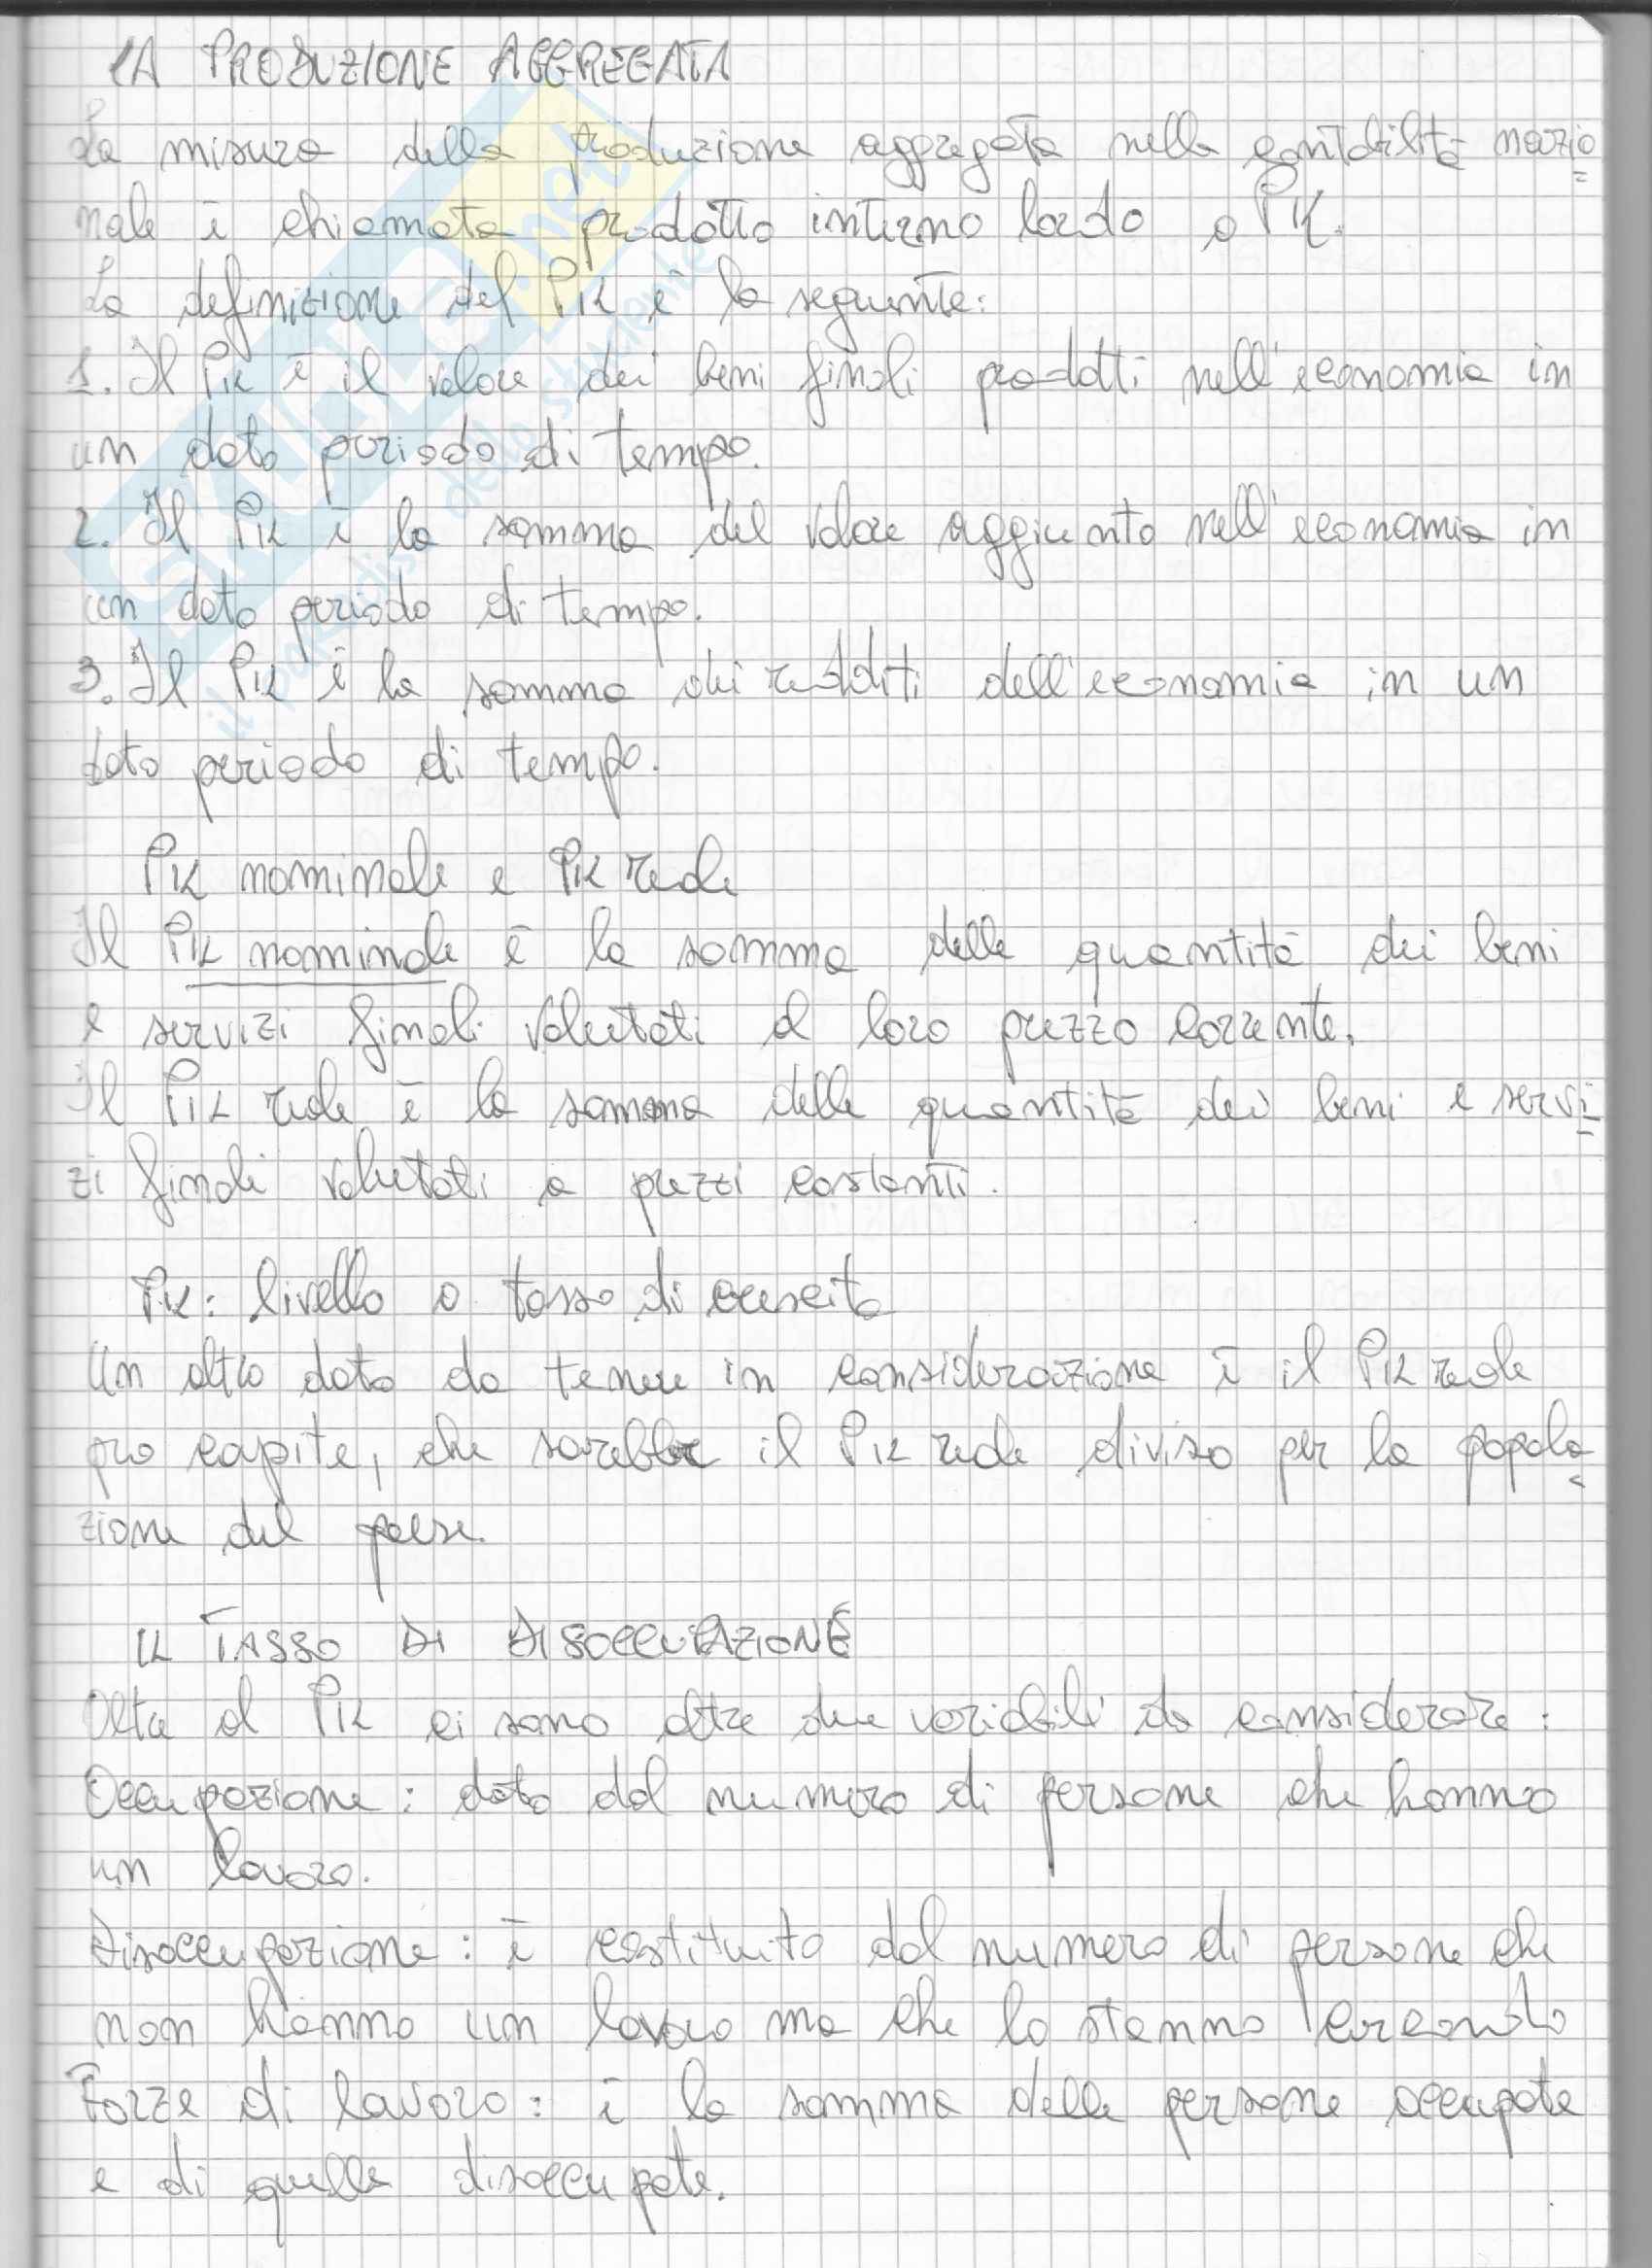 LA PRODUZIONE AGGREGATA
La misura della produzione aggregata nella contabilità nazio
nale è chiamata prodotto interno lordo o PIL.
La definizione del PIL è la seguente:
1. Il PIL è il valore dei beni finali prodotti nell'economia in
un dato periodo di tempo.
2. Il PIL è la somma del valore aggiunto nell'economia in
un dato periodo di tempo.
3. Il PIL è la somma dei redditi dell'economia in un
dato periodo di tempo.
PIL nominale e PIL reale
Il PIL nominale è la somma delle quantità dei beni
e servizi finali valutati al loro prezzo corrente.
Il PIL reale è la somma delle quantità dei beni e servi
zi finali valutati a prezzi costanti.
PIL: livello o tasso di crescita
Un altro dato da tenere in considerazione è il PIL reale
pro capite, che sarebbe il PIL reale diviso per la popola
zione del paese.
IL TASSO DI DISOCCUPAZIONE
Oltre al PIL ci sono altre due variabili da considerare:
Occupazione: dato dal numero di persone che hanno
un lavoro.
Disoccupazione: è costituito dal numero di persone che
non hanno un lavoro ma che lo stanno cercando
Forze di lavoro: è la somma delle persone occupate
e di quelle disoccupate.